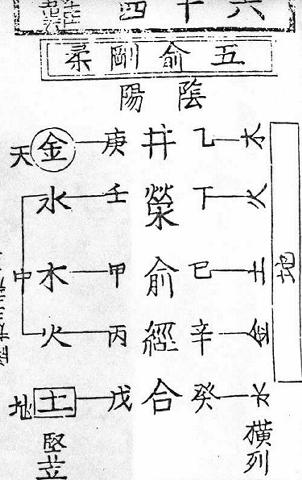 六十四難
五俞剛柔
陰陽
地
木乙井庚金天
火丁滎壬水
土巳俞甲木中
金辛經丙火
水癸合戊土地
橫列
竪立